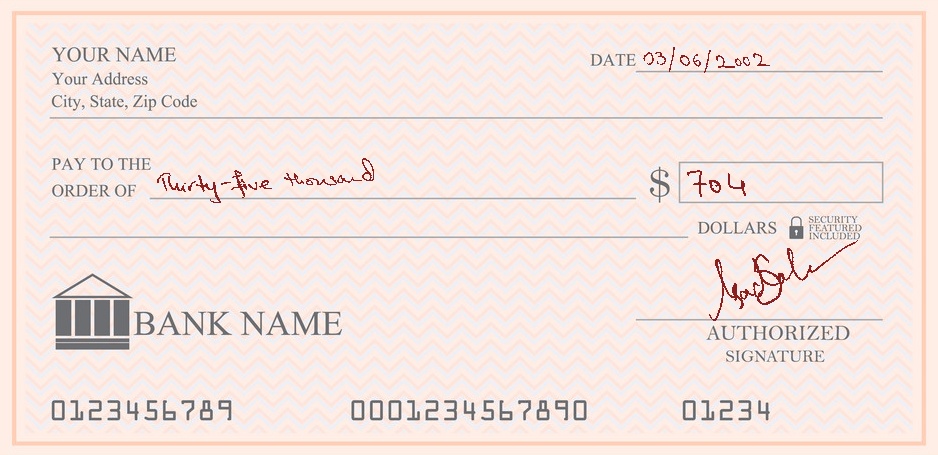 YOUR NAME
Your Address
City, State, Zip Code
DATE 03/06/2002
PAY TO THE
ORDER OF Thirty-five thousand
$ 704
DOLLARS
SECURITY
FEATURED
INCLUDED
BANK NAME
AUTHORIZED
SIGNATURE
0123456789 0001234567890 01234